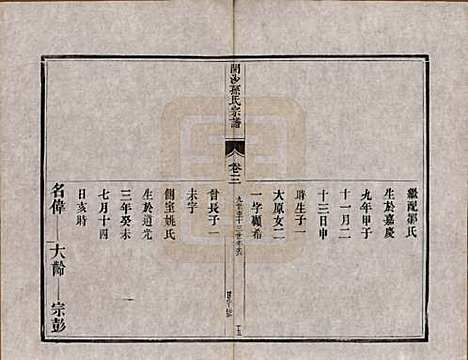 繼配鄒氏
生於嘉慶
九年甲子
十一月二
十三日申
時生子一
大原女二
一字顧希
曾長子一
未字
側室姚氏
生於道光
三年癸未
七月十四
日亥時
開沙孫氏宗譜
卷三
名偉
大齡
宗彭